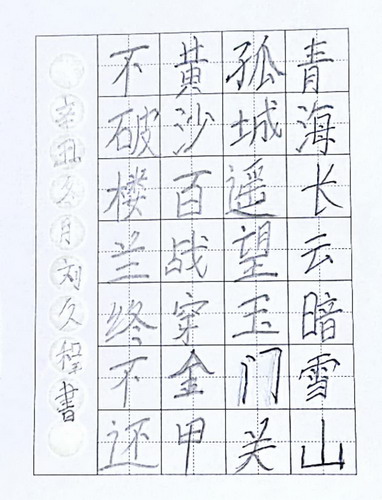 青海长云暗雪山
孤城遥望玉门关
黄沙百战穿金甲
不破楼兰终不还
辛丑冬月刘久程書